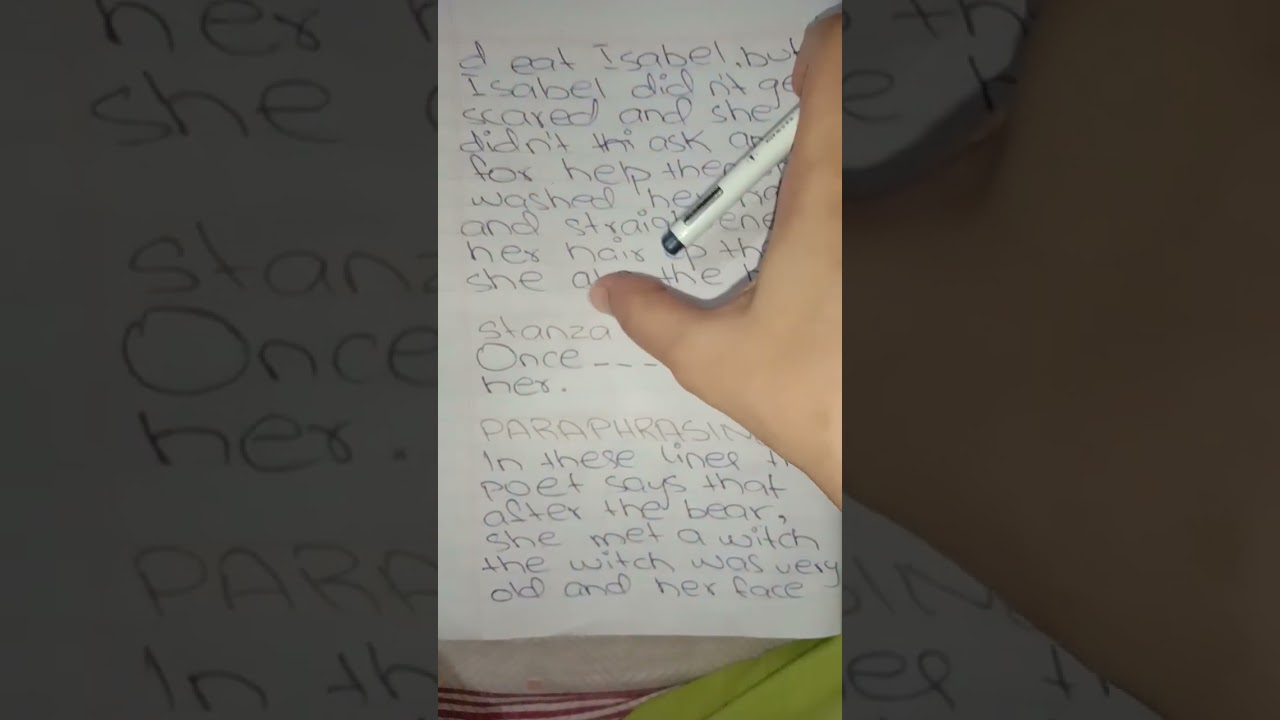 d eat Isabel, but
Isabel didn't ge
scared and she
didn't thi ask an
for help the
washed her
and straightene
her hair up the
she the
Stanza
Once ----
her.
PARAPHRASIN
In these lines
poet says that
after the bear,
she met a witch
the witch was very
old and her face